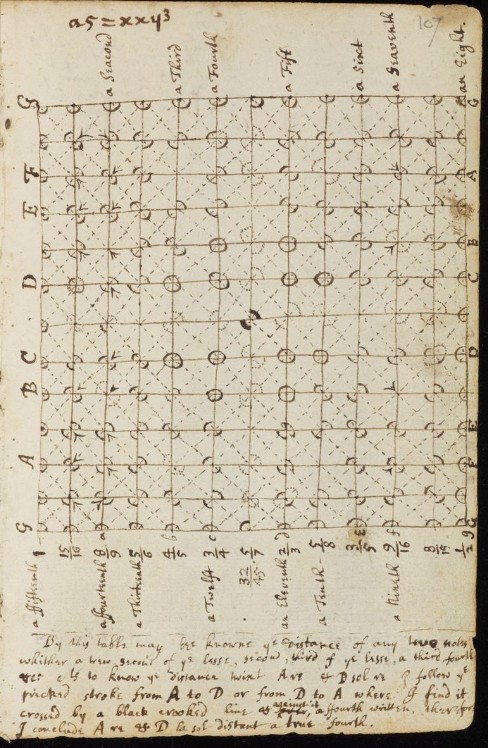 a5 = xxy³
107
a Seacond
a Third
a Fourth
a Fift
a Sixt
a Seaventh
an Eight.
G
G
F
A
E
B
D
C
C
D
B
E
A
F
G
G
1
15/16
8/9
5/6
4/5
3/4
32/45
5/7
2/3
5/8
3/5
9/16
8/15
1/2
a fifteenth
a fourteenth
a Thirteenth
a Twelft
an Eleventh
a Tenth
a Nineth
By this table may bee knowne ye distance of any two notes
whither a true, second of ye lesse, second, third of ye lesse, a third fourth
&c: to know ye distance twixt A re & D sol re I follow ye
pricked stroke from A to D or from D to A where I find it
crossed by a black crooked line & against it a fourth written, therefore
I conclude A re & D la sol distant a true fourth.